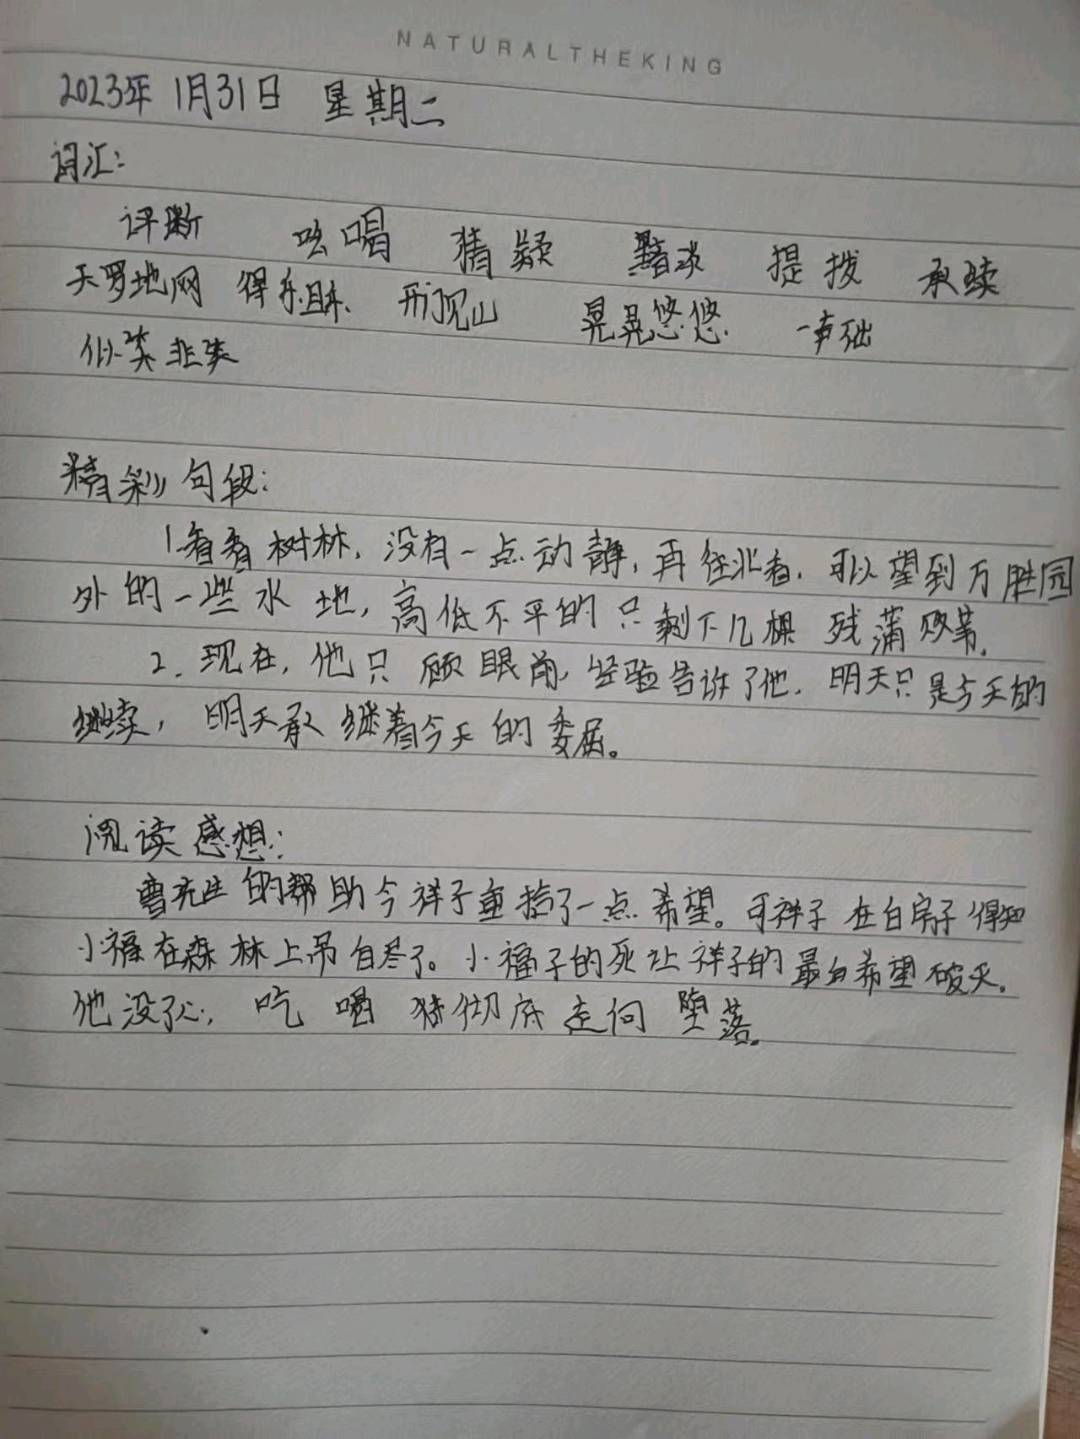 NATURALTHEKING
2023年1月31日 星期二
词汇:
评断 吆喝 猜疑 黯淡 提拨 承续
天罗地网 得 晃晃悠悠 一声
似类非类
精彩句段:
1.看看树林,没有一点动静,再往北看,可以望到万胜园
外的一些水地,高低不平的只剩下几棵残蒲败苇.
2.现在,他只顾眼前,经验告诉了他,明天只是今天的
继续,明天承继着今天的委屈。
阅读感想:
曹先生的帮助令祥子重拾了一点希望。可祥子在白房子得知
小福在森林上吊自尽了。小福子的死让祥子的最后希望破灭.
他没了心,吃喝 彻底走向堕落。